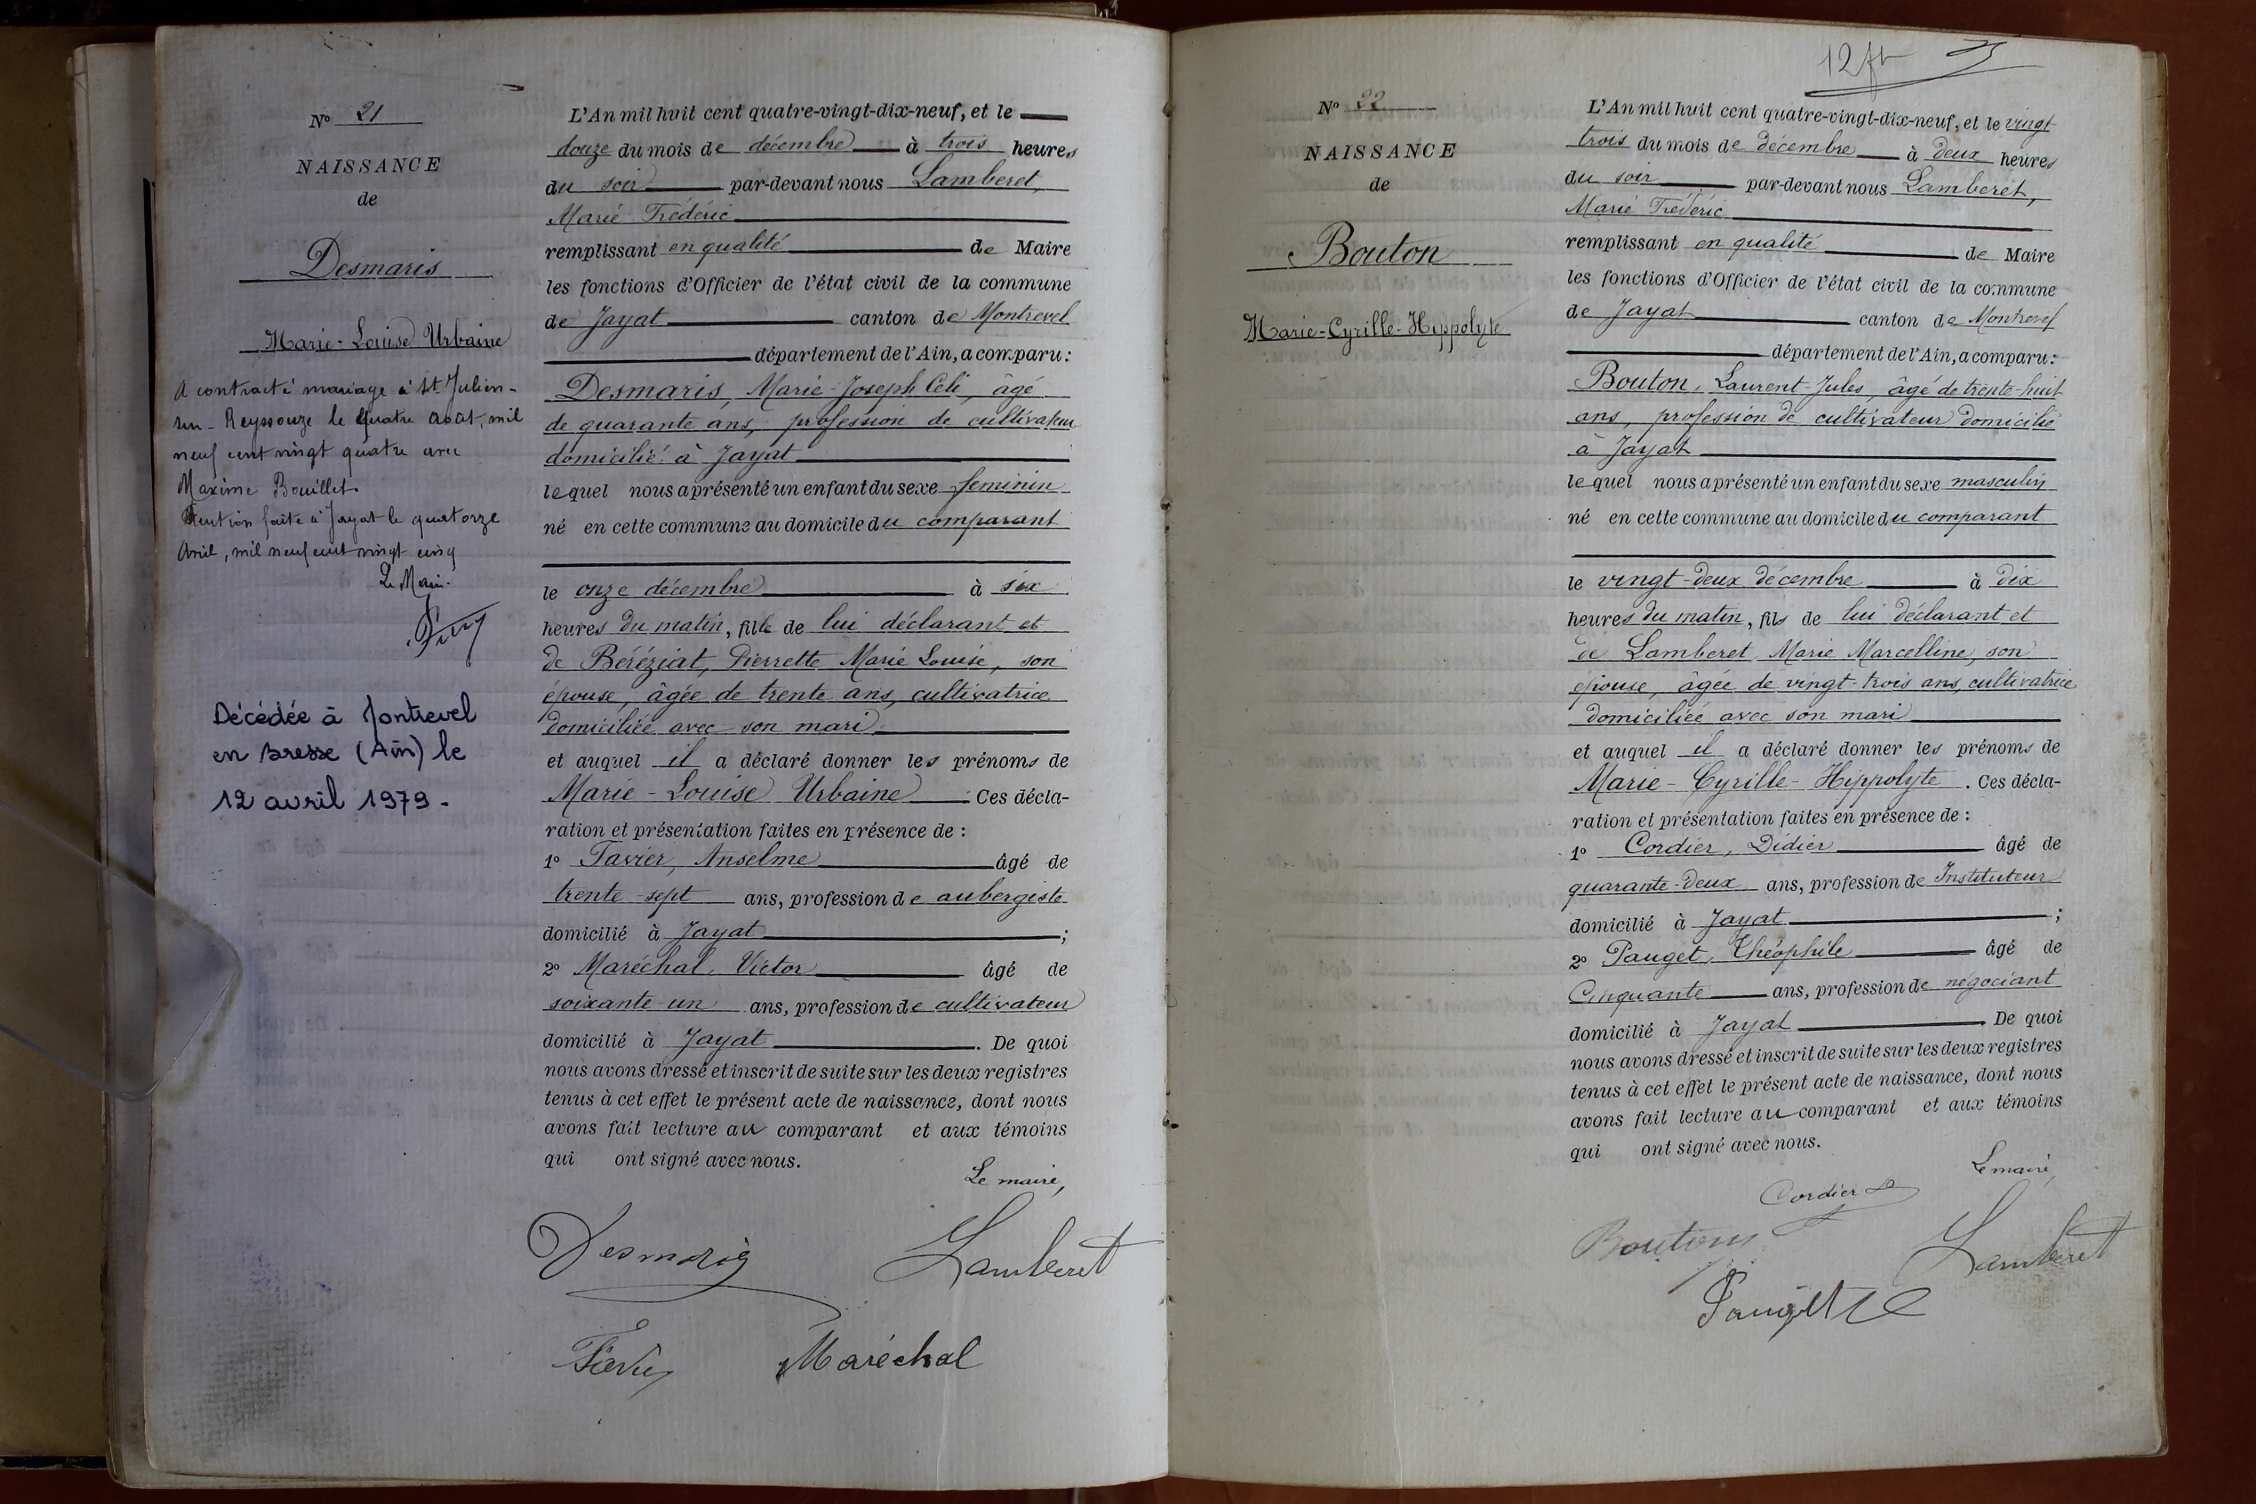 N° 21
NAISSANCE
de
Desmaris
Marie-Louise Urbaine
A contracté mariage à St Julien-
sur-Reyssouze le quatre août, mil
neuf cent vingt quatre avec
Maxime Bouillet.
Mention faite à Jayat le quatorze
Avril, mil neuf cent vingt cinq
Le Maire.
Décédée à Montrevel
en Bresse (Ain) le
12 avril 1979.
L'An mil huit cent quatre-vingt-dix-neuf, et le
douze du mois de décembre à trois heures
du soir par-devant nous Lamberet,
Marie Frédéric
remplissant en qualité de Maire
les fonctions d'Officier de l'état civil de la commune
de Jayat canton de Montrevel
département de l'Ain, a comparu :
Desmaris, Marie-Joseph Céli, âgé
de quarante ans, profession de cultivateur
domicilié à Jayat
lequel nous a présenté un enfant du sexe féminin
né en cette commune au domicile du comparant
le onze décembre à six
heures du matin, fille de lui déclarant et
de Béréziat, Pierrette Marie Louise, son
épouse, âgée de trente ans, cultivatrice
domiciliée avec son mari
et auquel il a déclaré donner les prénoms de
Marie-Louise Urbaine. Ces décla-
ration et présentation faites en présence de :
1° Favier, Anselme âgé de
trente-sept ans, profession de aubergiste
domicilié à Jayat ;
2° Maréchal, Victor âgé de
soixante-un ans, profession de cultivateur
domicilié à Jayat. De quoi
nous avons dressé et inscrit de suite sur les deux registres
tenus à cet effet le présent acte de naissance, dont nous
avons fait lecture au comparant et aux témoins
qui ont signé avec nous.
Le maire,
Desmaris Lamberet
Favier Maréchal
12
N° 22
NAISSANCE
de
Bouton
Marie-Cyrille-Hippolyte
L'An mil huit cent quatre-vingt-dix-neuf, et le vingt
trois du mois de décembre à deux heures
du soir par-devant nous Lamberet,
Marie Frédéric
remplissant en qualité de Maire
les fonctions d'Officier de l'état civil de la commune
de Jayat canton de Montrevel
département de l'Ain, a comparu :
Bouton, Laurent-Jules, âgé de trente-huit
ans, profession de cultivateur domicilié
à Jayat
lequel nous a présenté un enfant du sexe masculin
né en cette commune au domicile du comparant
le vingt-deux décembre à dix
heures du matin, fils de lui déclarant et
de Lamberet Marie Marcelline, son
épouse, âgée de vingt-trois ans, cultivatrice
domiciliée avec son mari
et auquel il a déclaré donner les prénoms de
Marie-Cyrille-Hippolyte. Ces décla-
ration et présentation faites en présence de :
1° Cordier, Didier âgé de
quarante-deux ans, profession de Instituteur
domicilié à Jayat ;
2° Pauget, Théophile âgé de
Cinquante ans, profession de négociant
domicilié à Jayat. De quoi
nous avons dressé et inscrit de suite sur les deux registres
tenus à cet effet le présent acte de naissance, dont nous
avons fait lecture au comparant et aux témoins
qui ont signé avec nous.
Le maire,
Cordier
Bouton Lamberet
Pauget